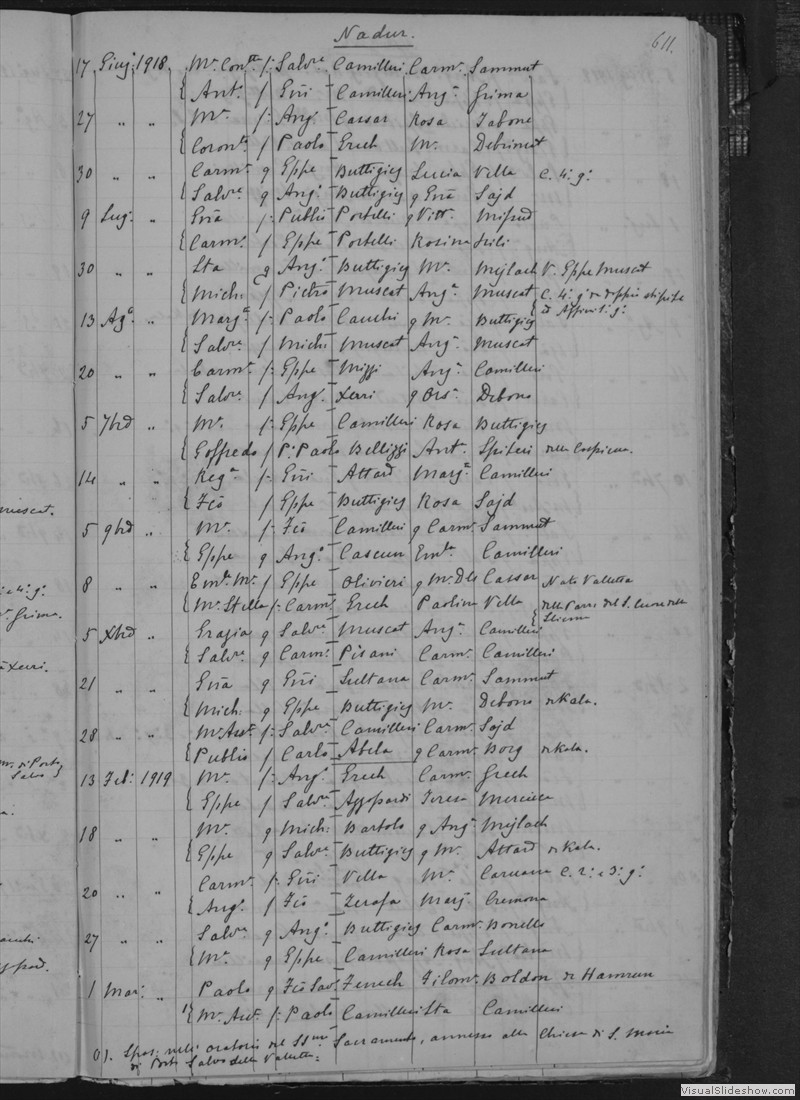 Nadur.
611.
17 Giug: 1918. Mª Conᵗᵃ f: Salvʳᵉ Camilleri Carmª Sammut
Antº f Giů Camilleri Angª Grima
27 " " Mª f: Angº Caesar Rosa Tabone
Coronᵗᵒ f Paolo Grech Mª Debrincat
30 " " Carmª q Gppe Buttigieg Lucia Vella C. 4º gº
Salvʳᵉ q Angº Buttigieg q Giůa Sajd
9 Lug: " Giůa f: Publio Portelli q Vittª Mifsud
Carmº f Gppe Portelli Rosina
30 " " Sta q Angº Buttigieg Mª Mejlach V. Gppe Muscat
Mich: f Pietro Muscat Angª Muscat C. 4º gº doppio stipite
13 Agº " Margª f: Paolo Cauchi q Mª Buttigieg ed Affin gº
Salvʳᵉ f Mich: Muscat Angª Muscat
20 " " Carmª f: Gppe Mizzi Angª Camilleri
Salvʳᵉ f Angº Xerri q Orsª Debono
5 7brě " Mª f: Gppe Camilleri Rosa Buttigieg
Goffredo f P: Paolo Bellizzi Antª Spiteri della Cospicua.
14 " " Regª f: Giů Attard Margª Camilleri
Fcő f Gppe Buttigieg Rosa Sajd
5 9brě " Mª f: Fcő Camilleri q Carmª Sammut
Gppe q Angº Cascun Emᵗᵃ Camilleri
8 " " Emᵗᵃ Mª f Gppe Olivieri q Mª Dls Caesar Nata Valletta
Mª Stella f: Carmº Grech Paolina Vella della Parr. del S. Cuore della Sliema
5 Xbrě " Grazia q Salvʳᵉ Muscat Angª Camilleri
Salvʳᵉ q Carmº Pisani Carmª Camilleri
21 " " Giůa q Giů Sultana Carmª Sammut
Mich: q Gppe Buttigieg Mª Debono di Kala.
28 " " Mª Antª f: Salvʳᵉ Camilleri Carmª Sajd
Publio f Carlo Abela q Carmª Borg di Kala.
13 Feb: 1919 Mª f: Angº Grech Carmª Grech
Gppe f Salvʳᵉ Azzopardi Teresa Mercieca
18 " " Mª q Mich: Bartolo q Angª Mejlach
Gppe q Salvʳᵉ Buttigieg q Mª Attard di Kala.
20 " " Carmª f: Giů Vella Mª Caruana C. 2º e 3º gº
Angº f Fcő Zerafa Margª Cremona
27 " " Salvʳᵉ q Angº Buttigieg Carmª Bonello
Mª q Gppe Camilleri Rosa Sultana
1 Mar: " Paolo q Fcő Savº Fenech Filomª Boldon di Hamrun
1) Mª Antª f: Paolo Camilleri Sta Camilleri
1. Spos. nell' oratorio del SSmº Sacramento, annesso alla Chiesa di S. Maria
di Porto Salvo della Valletta.
muscat.
Grima.
Xerri.
di Porto
Salvo
VisualSlideshow.com